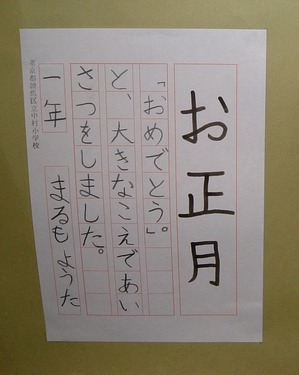 お正月
「おめでとう」。
と、大きなこえであい
さつをしました。
一年 まるもようた
東京都練馬区立中村小学校